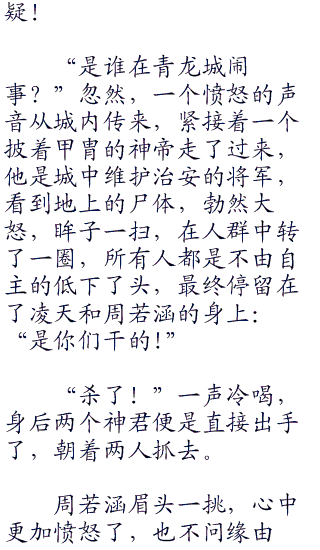 疑！
“是谁在青龙城闹
事？”忽然，一个愤怒的声
音从城内传来，紧接着一个
披着甲胄的神帝走了过来，
他是城中维护治安的将军，
看到地上的尸体，勃然大
怒，眸子一扫，在人群中转
了一圈，所有人都是不由自
主的低下了头，最终停留在
了凌天和周若涵的身上：
“是你们干的！”
“杀了！”一声冷喝，
身后两个神君便是直接出手
了，朝着两人抓去。
周若涵眉头一挑，心中
更加愤怒了，也不问缘由